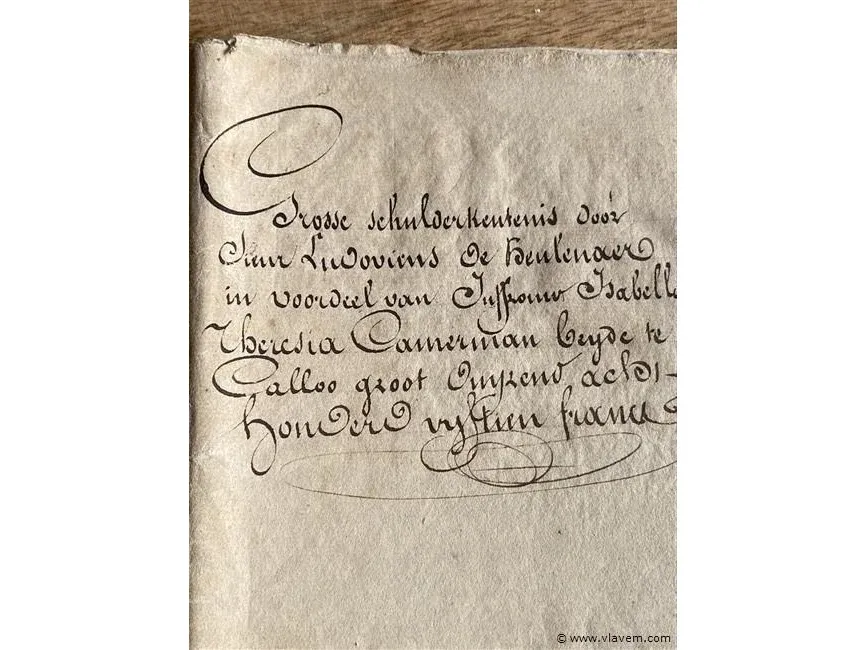 Grosse schulderkentenis door
Jean Ludovicus De Keulenaer
in voordeel van Juffrouw Isabelle
Theresia Camerman beyde te
Calloo groot Duyzend acht-
honderd vyftien francs
© www.vlavem.com